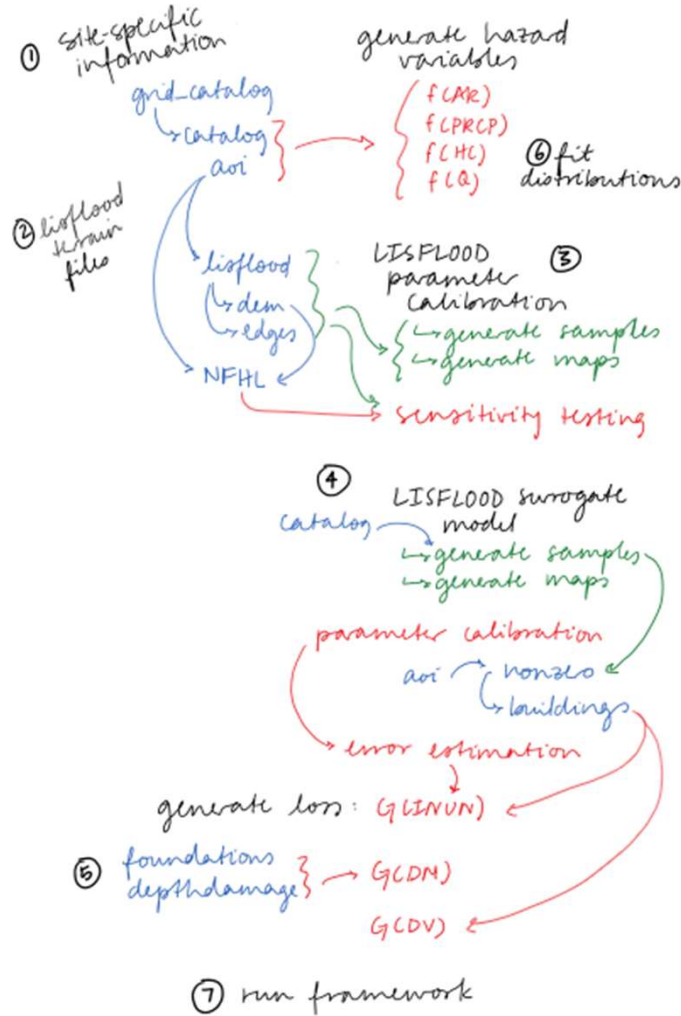 ① site-specific
information
grid_catalog
catalog
aoi
generate hazard
variables
f(AR)
f(PRCP)
f(HC)
f(Q)
⑥ fit
distributions
② lisflood
terrain
files
lisflood
dem
edges
NFHL
LISFLOOD ③
parameter
calibration
generate samples
generate maps
sensitivity testing
④
LISFLOOD surrogate
model
catalog
generate samples
generate maps
parameter calibration
aoi nonzero
buildings
error estimation
generate loss: G(INUN)
⑤ foundations
depthdamage
G(DM)
G(DV)
⑦ run framework